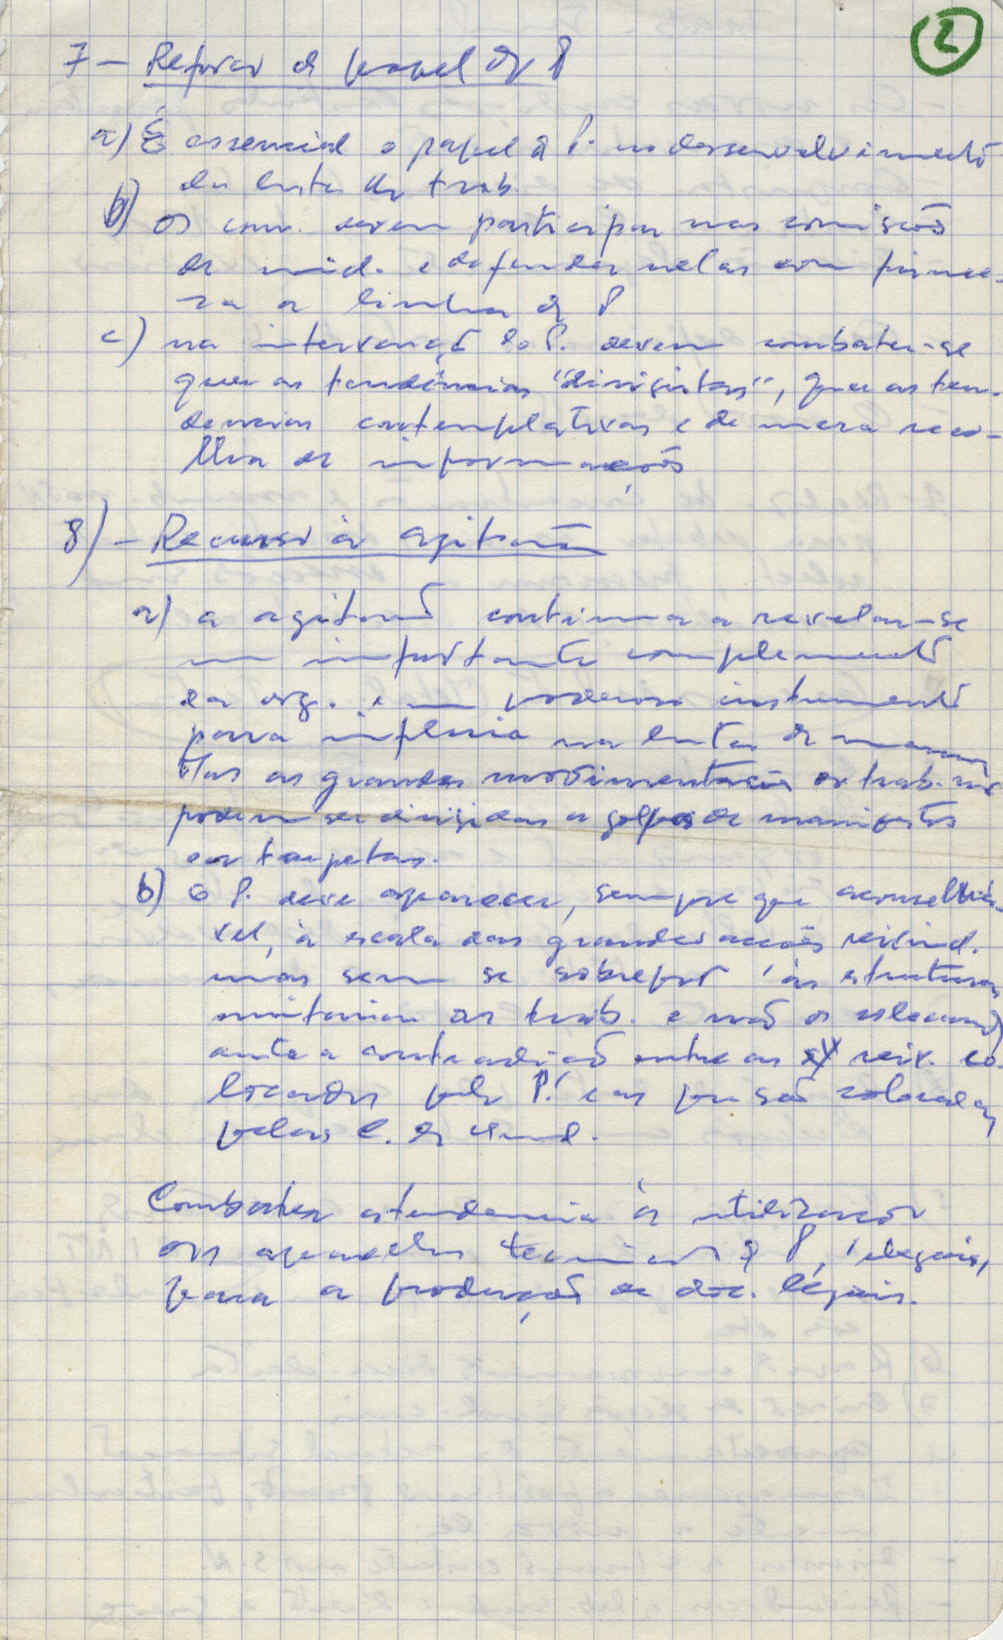 2
7 - Reforço do papel do P
a) É essencial o papel do P. no desenvolvimento
da luta dos trab.
b) Os cam. devem participar nas comissões
de unid. e defender nelas com firme-
za a linha do P
c) na intervenção do P. devem combater-se
quer as tendências "divisistas", quer as ten-
dencias contemplativas e de mera reco-
lha de informações
8) - Recurso à agitação
a) a agitação continua a revelar-se
um importante complemento
da org. e um poderoso instrumento
para influir na luta de massas
Mas as grandes movimentações dos trab. não
podem ser dirigidas a golpes de manifestos
ou tarjetas.
b) O P. deve aparecer, sempre que aconselhá-
vel, à escala das grandes acções reivind.
mas sem se sobrepôr às estruturas
unitárias dos trab. e não os colocando
ante a contradição entre as reiv. co-
locadas pelo P. e as que são colocadas
pelas C. de Unid.
Combater a tendencia à utilização
dos aparelhos tecnicos do P, ilegais,
para a produção de doc. legais.